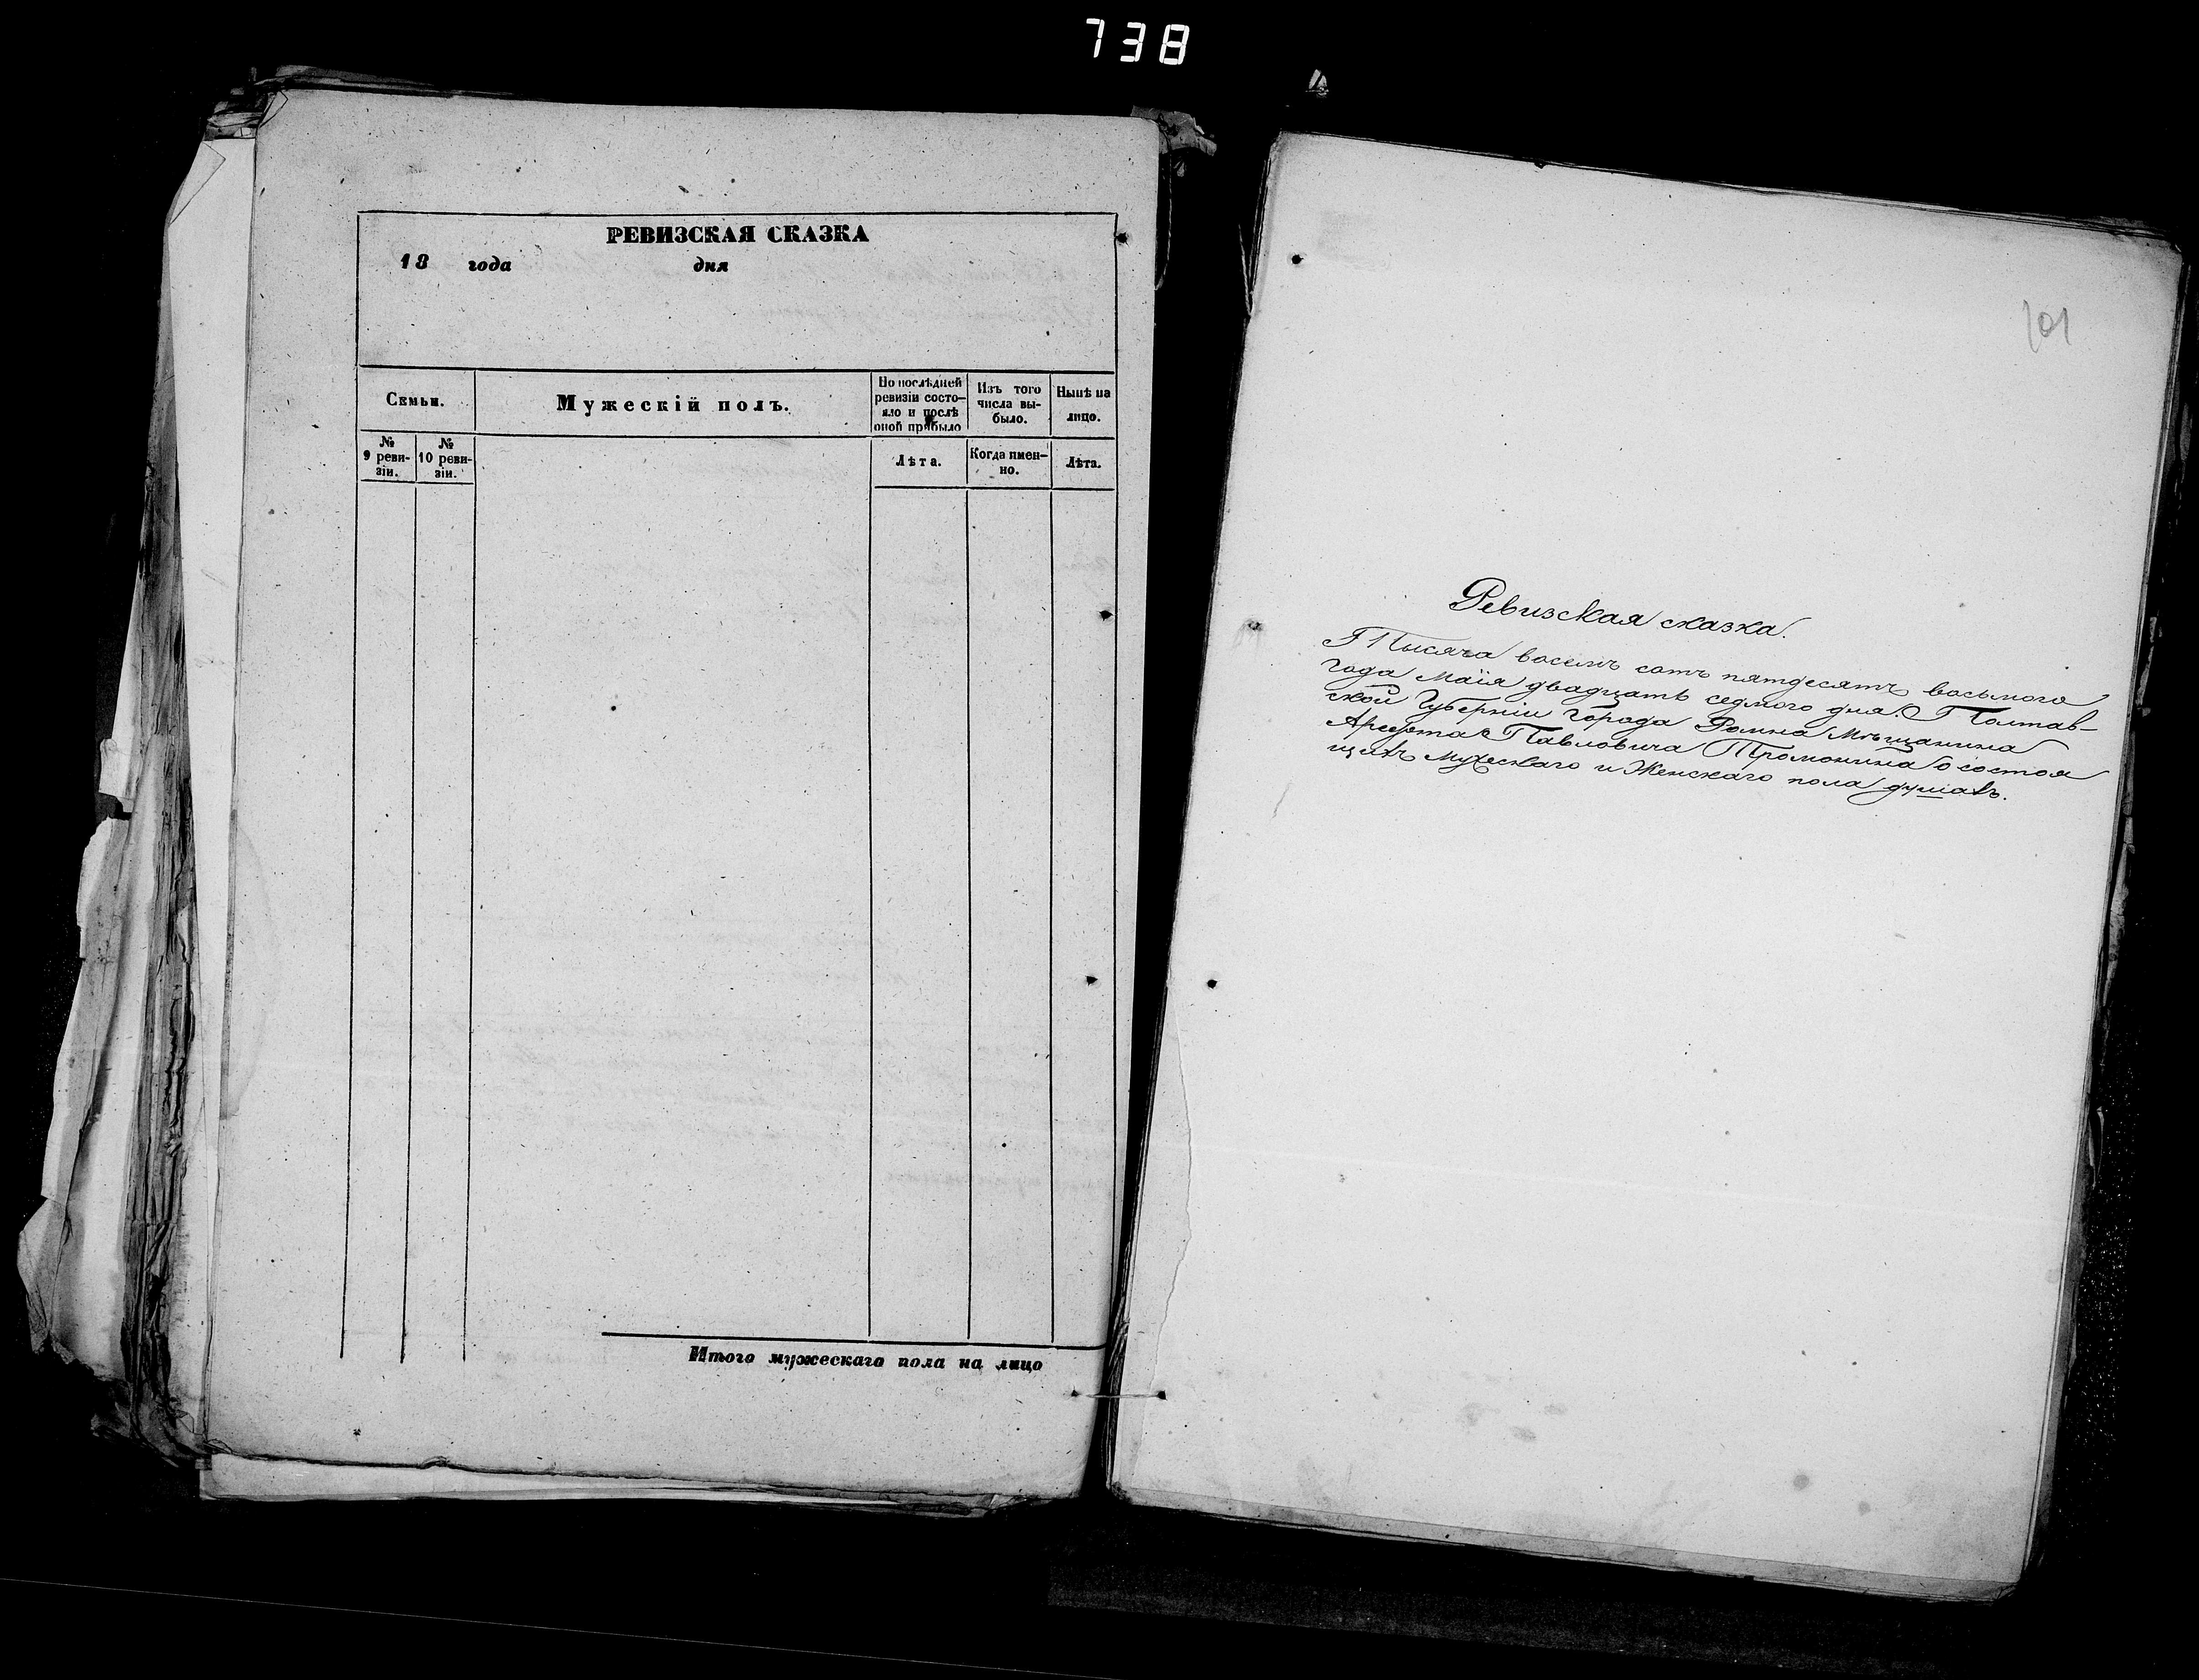 738
РЕВИЗСКАЯ СКАЗКА
18 года дня
Семьи.
Мужескій полъ.
По послѣдней
ревизіи состо-
яло и послѣ
оной прибыло
Изъ того
числа вы-
было.
Нынѣ на
лицо.
№
9 реви-
зіи.
№
10 реви-
зіи.
Лѣта.
Когда имен-
но.
Лѣта.
Итого мужескаго пола на лицо
101
Ревизская сказка.
Тысяча восемъ сотъ пятдесятъ восьмого
года Маія двадцать седмого дня. Полтав-
ской Губерніи города Ромна Мѣщанина
Павловича Тромонина о состоя
щихъ Мужескаго и Женскаго пола душахъ.